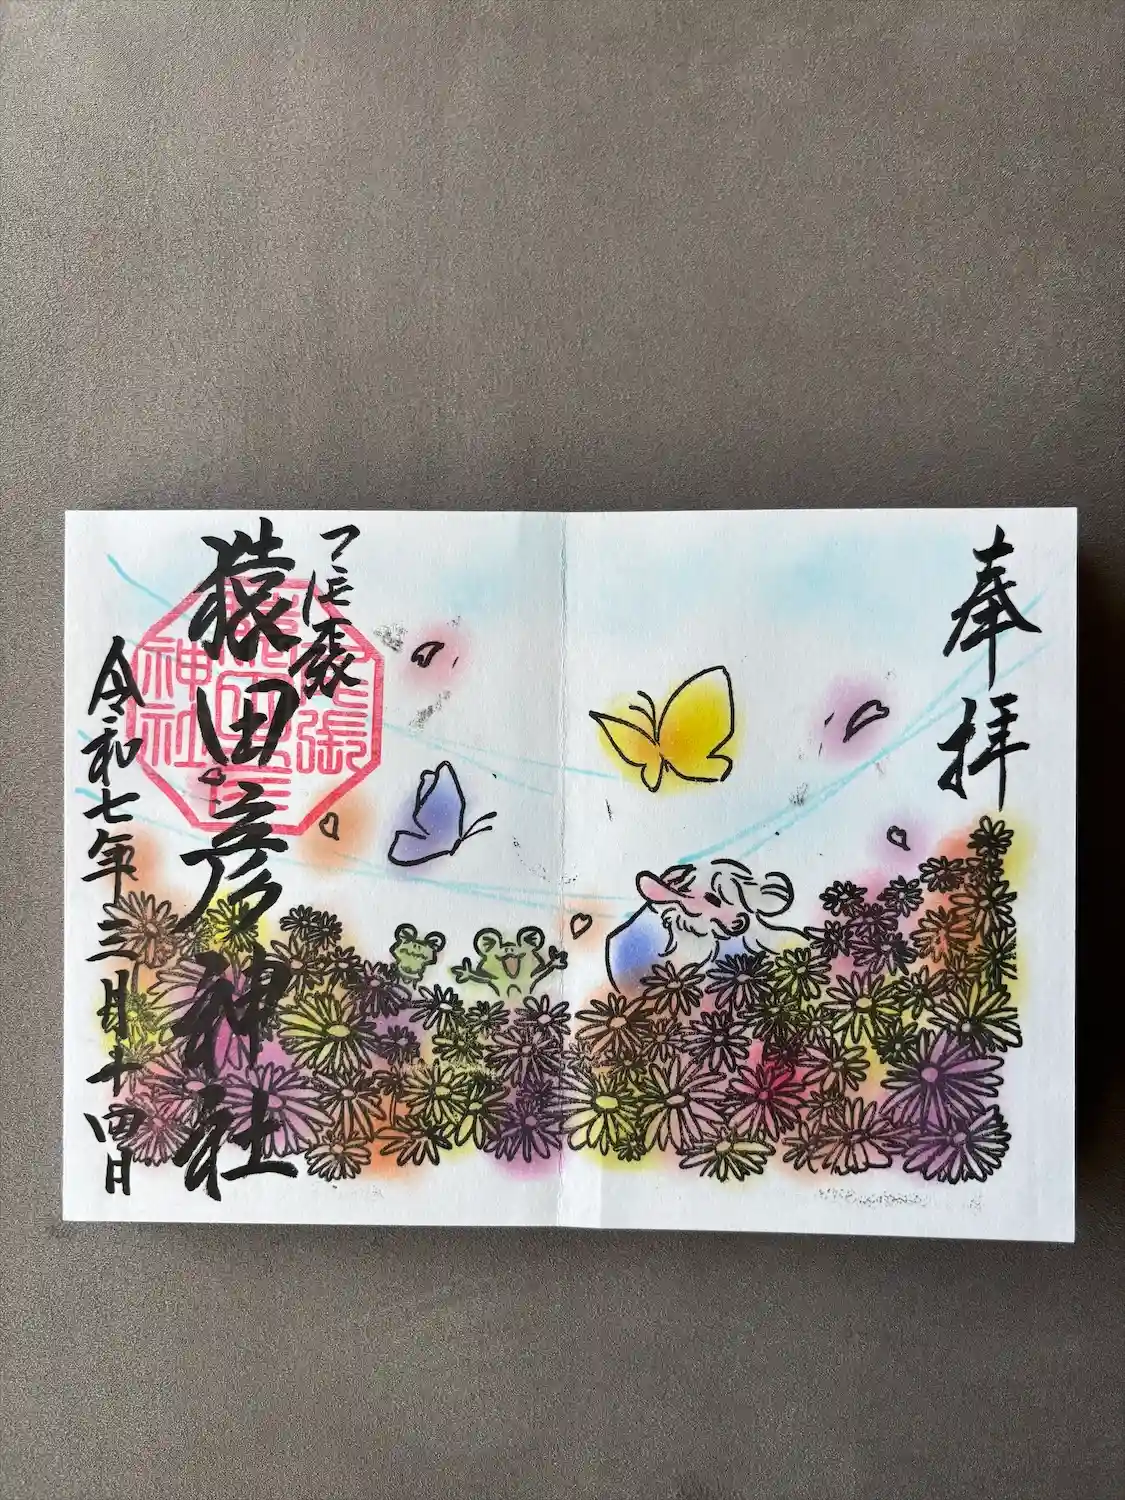 奉拝
尾張
猿田彦神社
令和七年三月十四日
尾張
猿田彦
神社